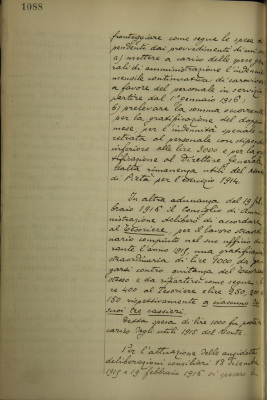 1088
fronteggiare come segue le spese di-
pendenti dai provvedimenti di cui
a) mettere a carico delle spese gene-
rali di amministrazione l'indennità
mensile continuativa di caroviveri
a favore del personale in servizio
partire dal 1° gennaio 1916;
b) prelevare la somma occorrente
per la gratificazione del doppio
mese, per l'indennità speciale
al personale con stipendio
inferiore alle lire 3000 e per la gra-
tificazione al Direttore Generale,
dalla rimanenza utili del Monte
di Pietà per l'esercizio 1914.
In altra adunanza del 19 feb-
braio 1916 il Consiglio di Ammi-
nistrazione deliberò di accordare
al Tesoriere, per il lavoro straordi-
nario compiuto nel suo ufficio du-
rante l'anno 1915, una gratificazione
straordinaria di lire 1000, da pa-
garsi contro quitanza del Tesoriere
stesso e da ripartirsi come segue: li-
re 400 al Tesoriere e lire
150 rispettivamente a ciascuno dei
suoi tre cassieri.
Detta spesa di lire 1000 fu posta a
carico degli utili 1915 del Monte.
Per l'attuazione delle suddette
deliberazioni consiliari 18 dicembre
1915 e 19 febbraio 1916 si